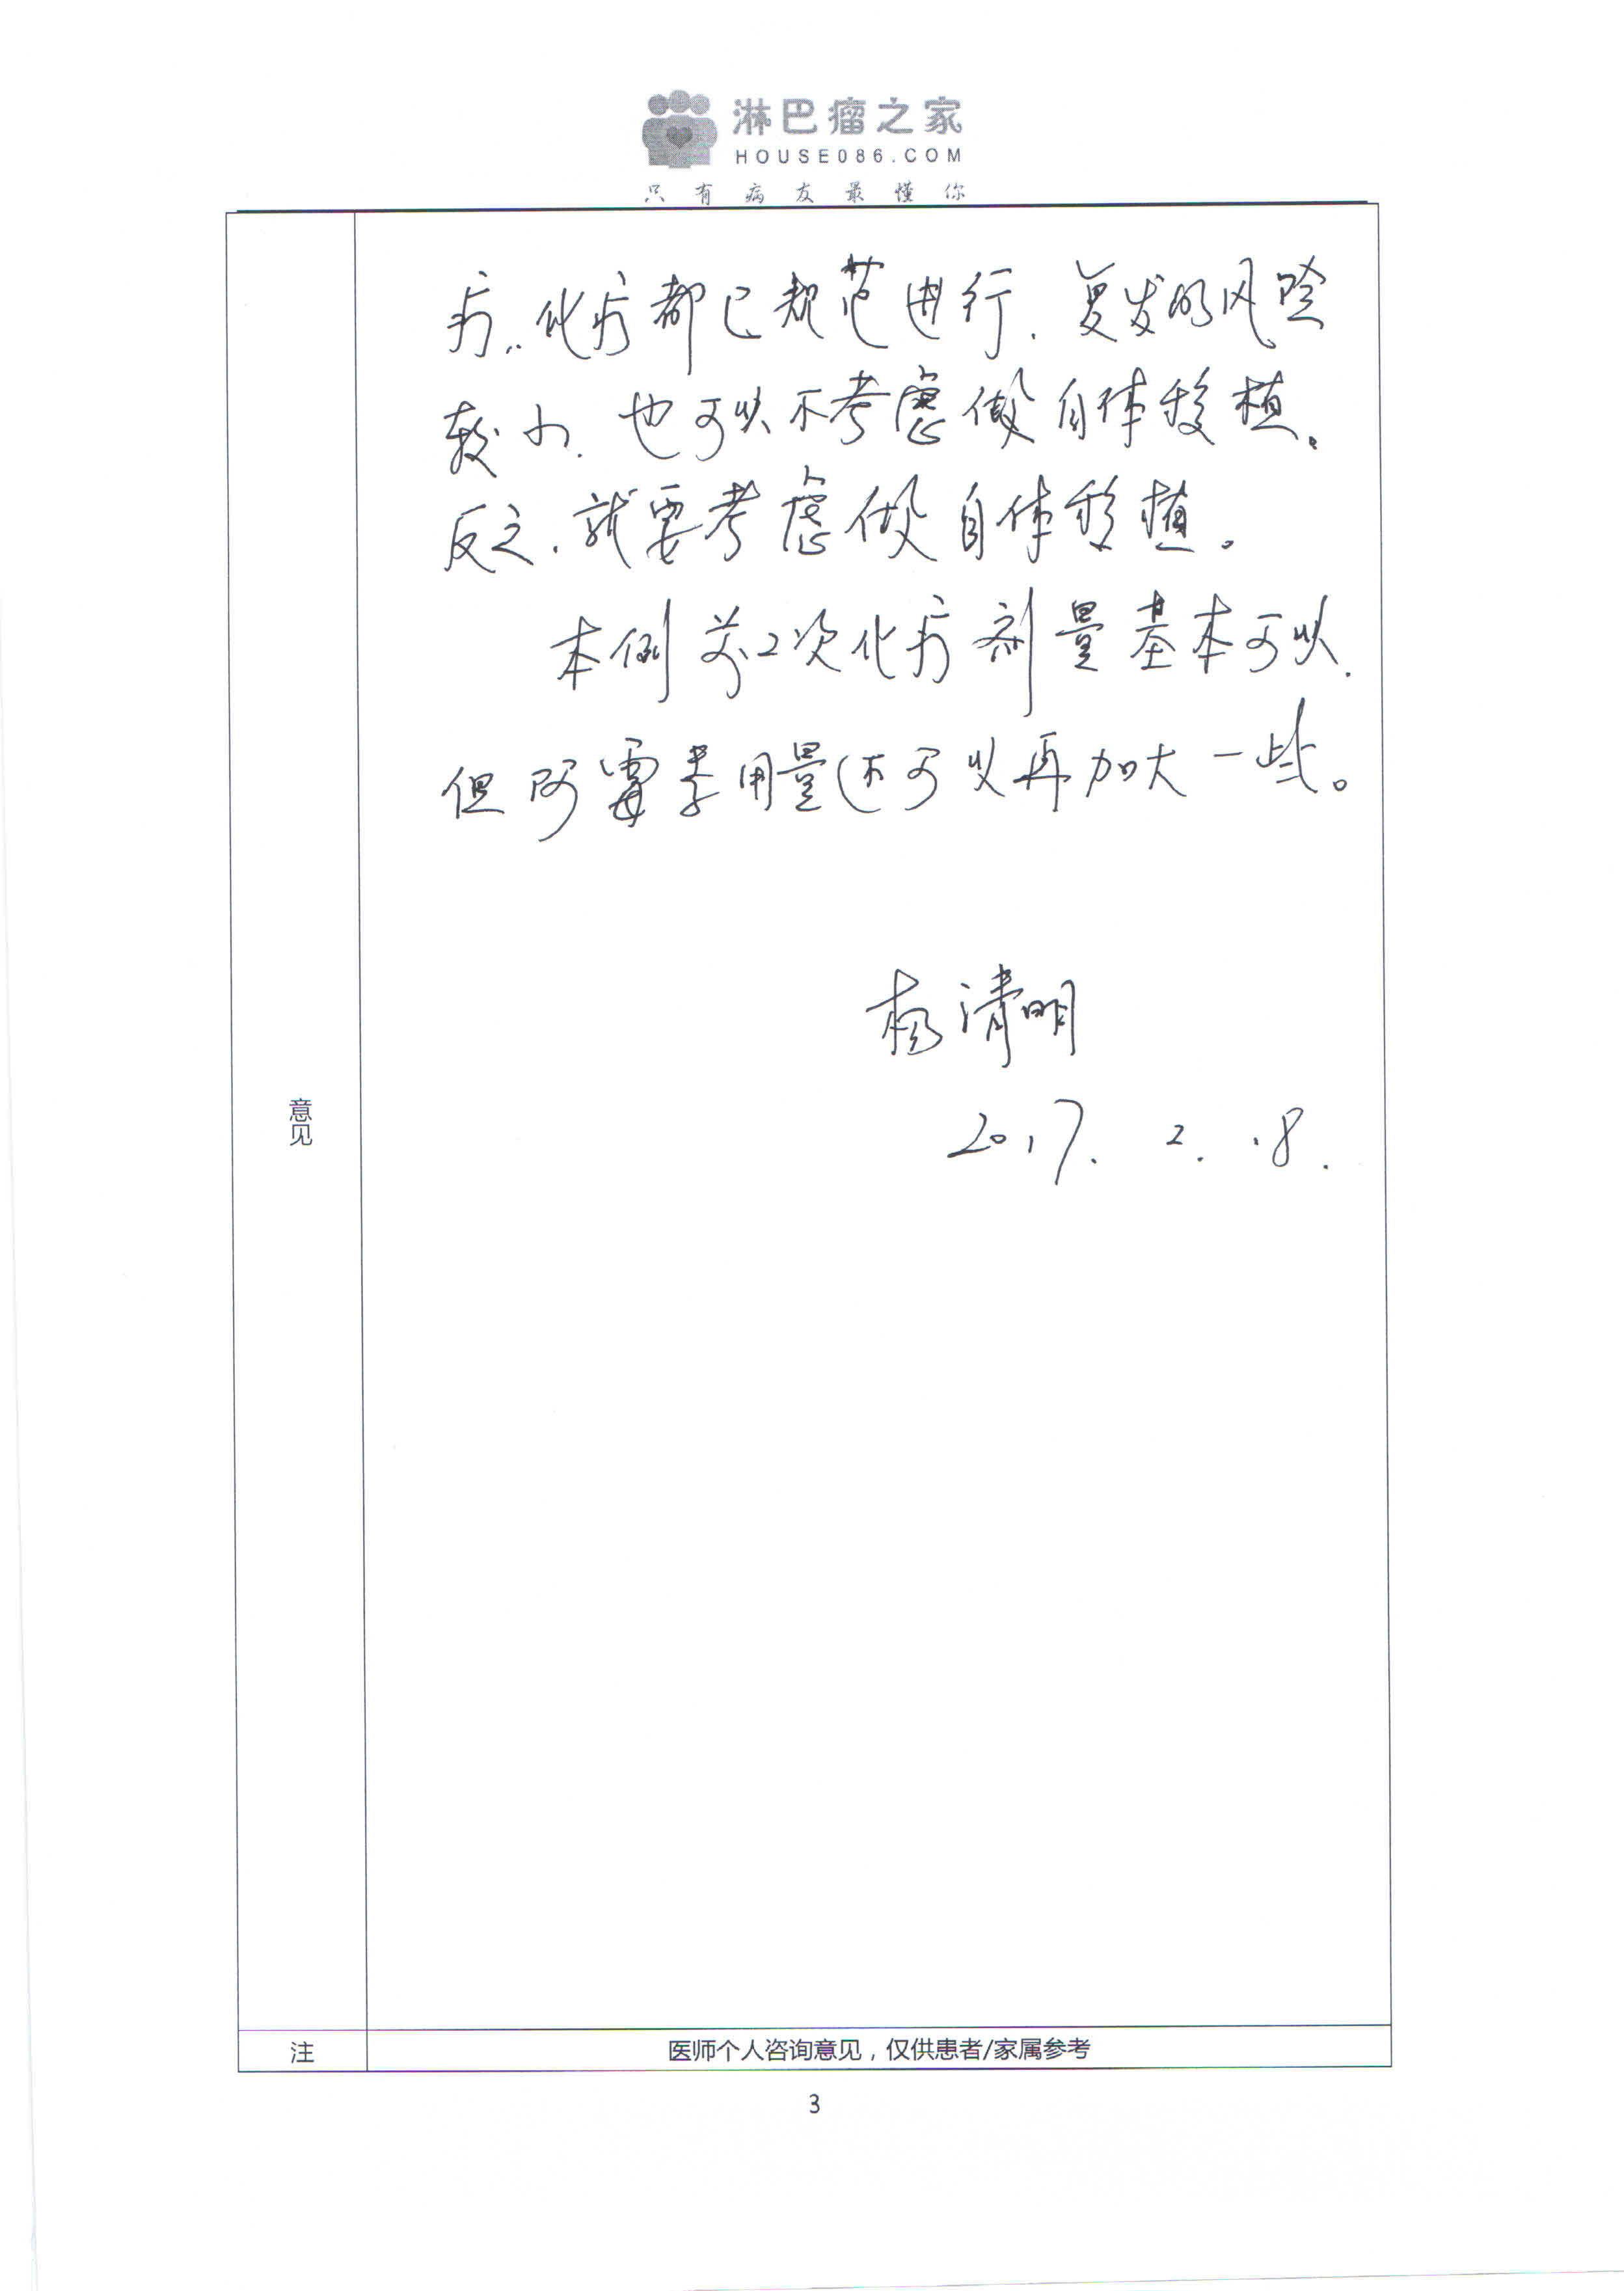 淋巴瘤之家
HOUSE086.COM
只有病友最懂你
疗、化疗都已规范进行.复发的风险
较小.也可以不考虑做自体移植。
反之.就要考虑做自体移植。
本例前2次化疗剂量基本可以.
但阿霉素用量还可以再加大一些。
杨清明
2017. 2. 18.
意见
注
医师个人咨询意见，仅供患者/家属参考
3